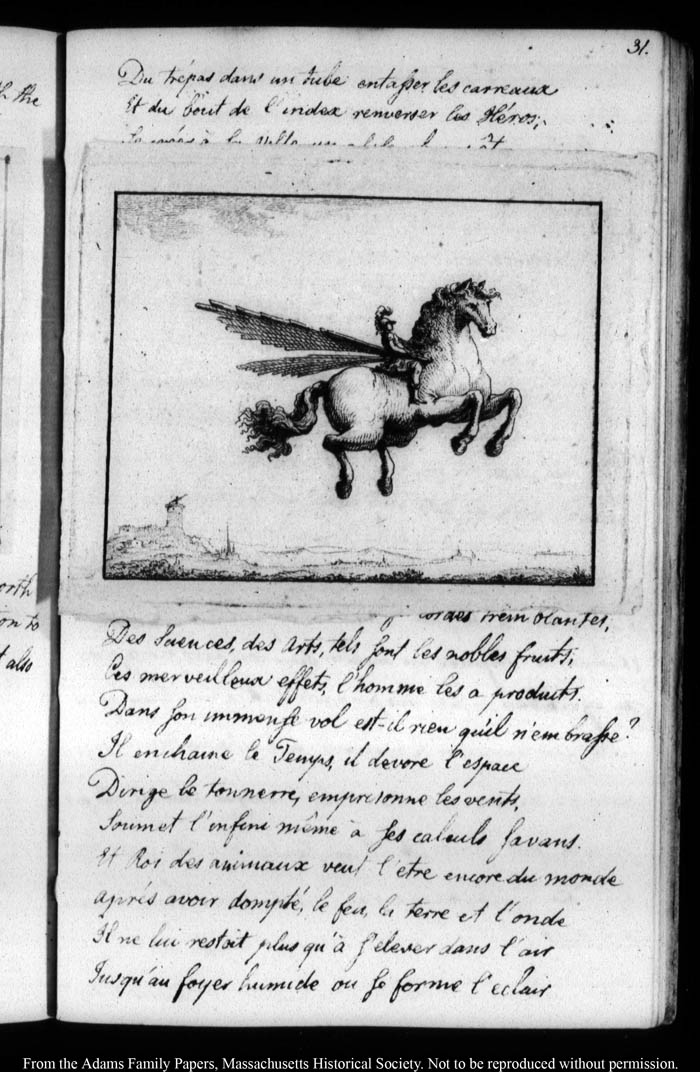 31.
Du trépas dans un tube entasser les carreaux
Et du bout de l'index renverser les Héros;
th the
orth
on to
t also
Des Sciences, des Arts, tels sont les nobles fruits,
Ces merveilleux effets, l'homme les a produits.
Dans son immense vol est-il rien qu'il n'embrasse?
Il enchaine le Temps, il devore l'espace
Dirige le tonnerre, emprisonne les vents,
Soumet l'infini même à ses calculs savans.
Et Roi des animaux veut l'etre encore du monde
après avoir dompté, le feu, la terre et l'onde
Il ne lui restoit plus qu'à s'elever dans l'air
Jusqu'au foyer humide ou se forme l'eclair
From the Adams Family Papers, Massachusetts Historical Society. Not to be reproduced without permission.